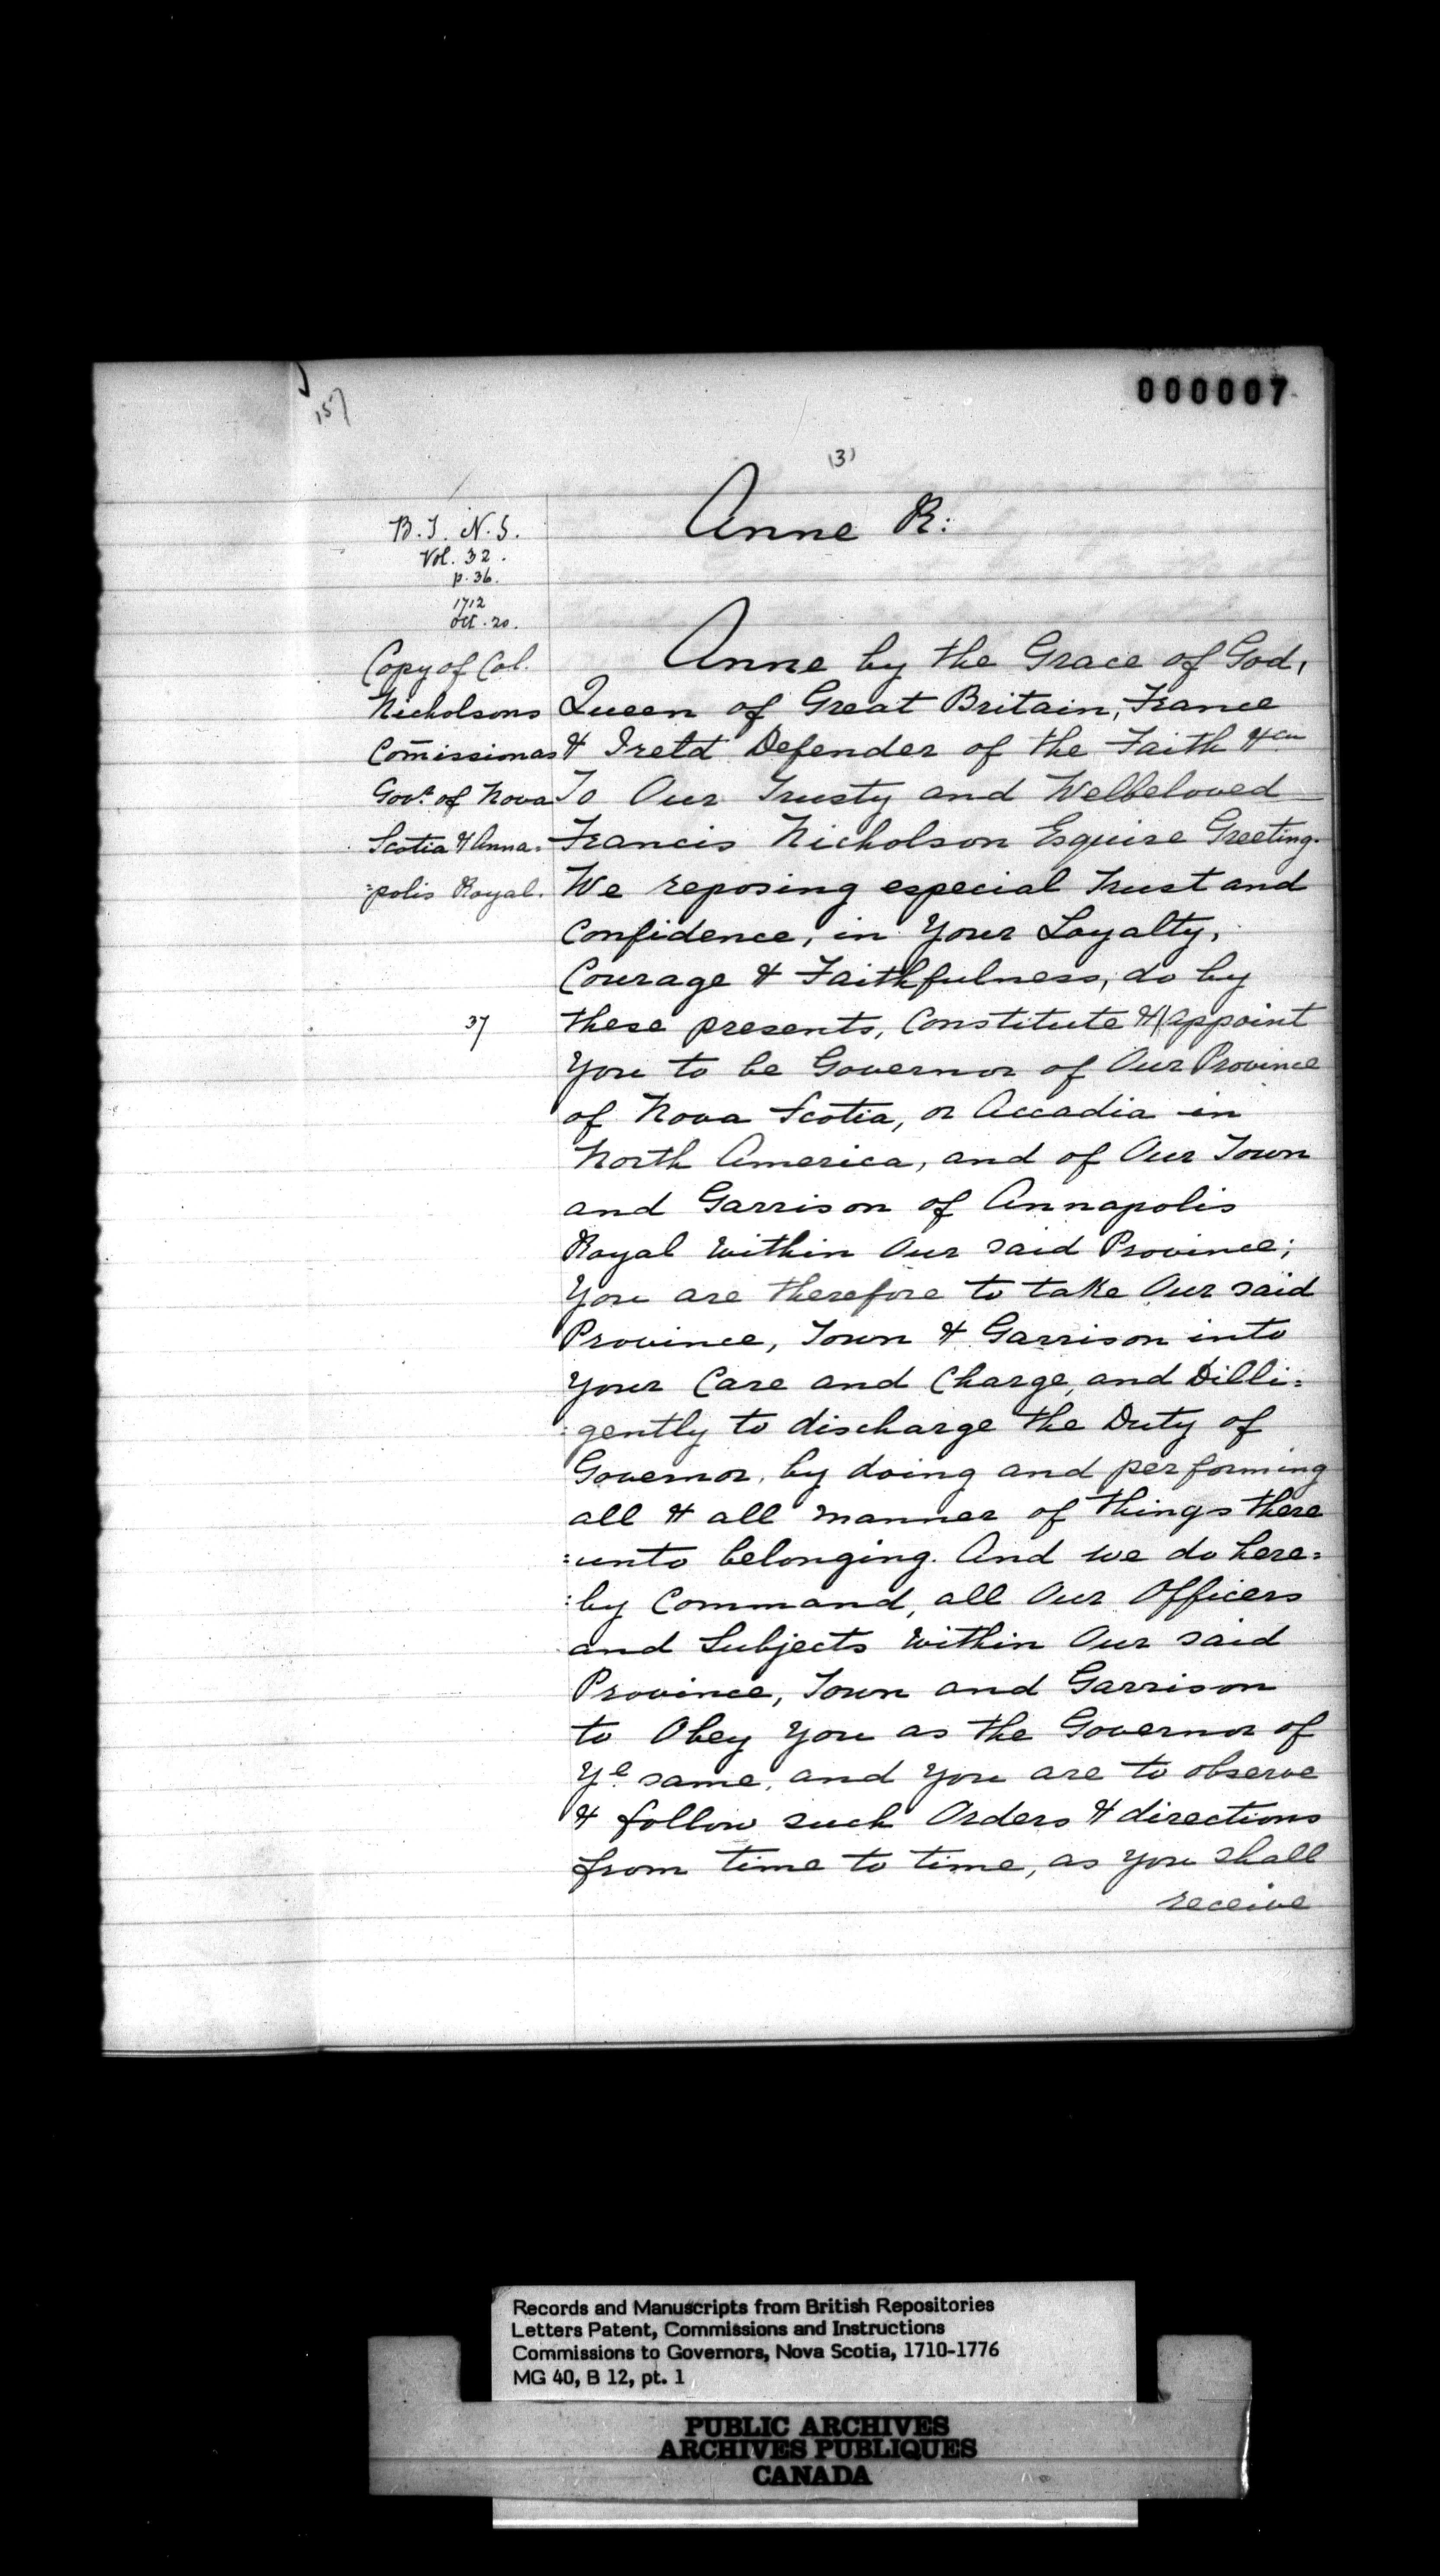 000007
157
(3)
Anne R:
B.T. N.S.
Vol. 32.
p. 36.
1712
Oct. 20.
Copy of Col.
Nicholsons
Com̄issionas
Govr. of Nova
Scotia & Anna=
=polis Royal.
37
Anne by the Grace of God,
Queen of Great Britain, France
& Ireld Defender of the Faith &ca
To Our Trusty and Welbeloved
Francis Nicholson Esquire Greeting.
We reposing especial Trust and
Confidence, in Your Loyalty,
Courage & Faithfulness, do by
these presents, Constitute &|appoint
You to be Governor of Our Province
of Nova Scotia, or Accadia in
North America, and of Our Town
and Garrison of Annapolis
Royal within Our said Province;
You are therefore to take Our said
Province, Town & Garrison into
your Care and Charge, and Dilli=
=gently to discharge the Duty of
Governor, by doing and performing
all & all manner of things there
=unto belonging. And we do here=
=by Command, all Our Officers
and Subjects within Our said
Province, Town and Garrison
to Obey you as the Governor of
Ye same, and you are to observe
& follow such Orders & directions
from time to time, as you shall
receive
Records and Manuscripts from British Repositories
Letters Patent, Commissions and Instructions
Commissions to Governors, Nova Scotia, 1710-1776
MG 40, B 12, pt. 1
PUBLIC ARCHIVES
ARCHIVES PUBLIQUES
CANADA